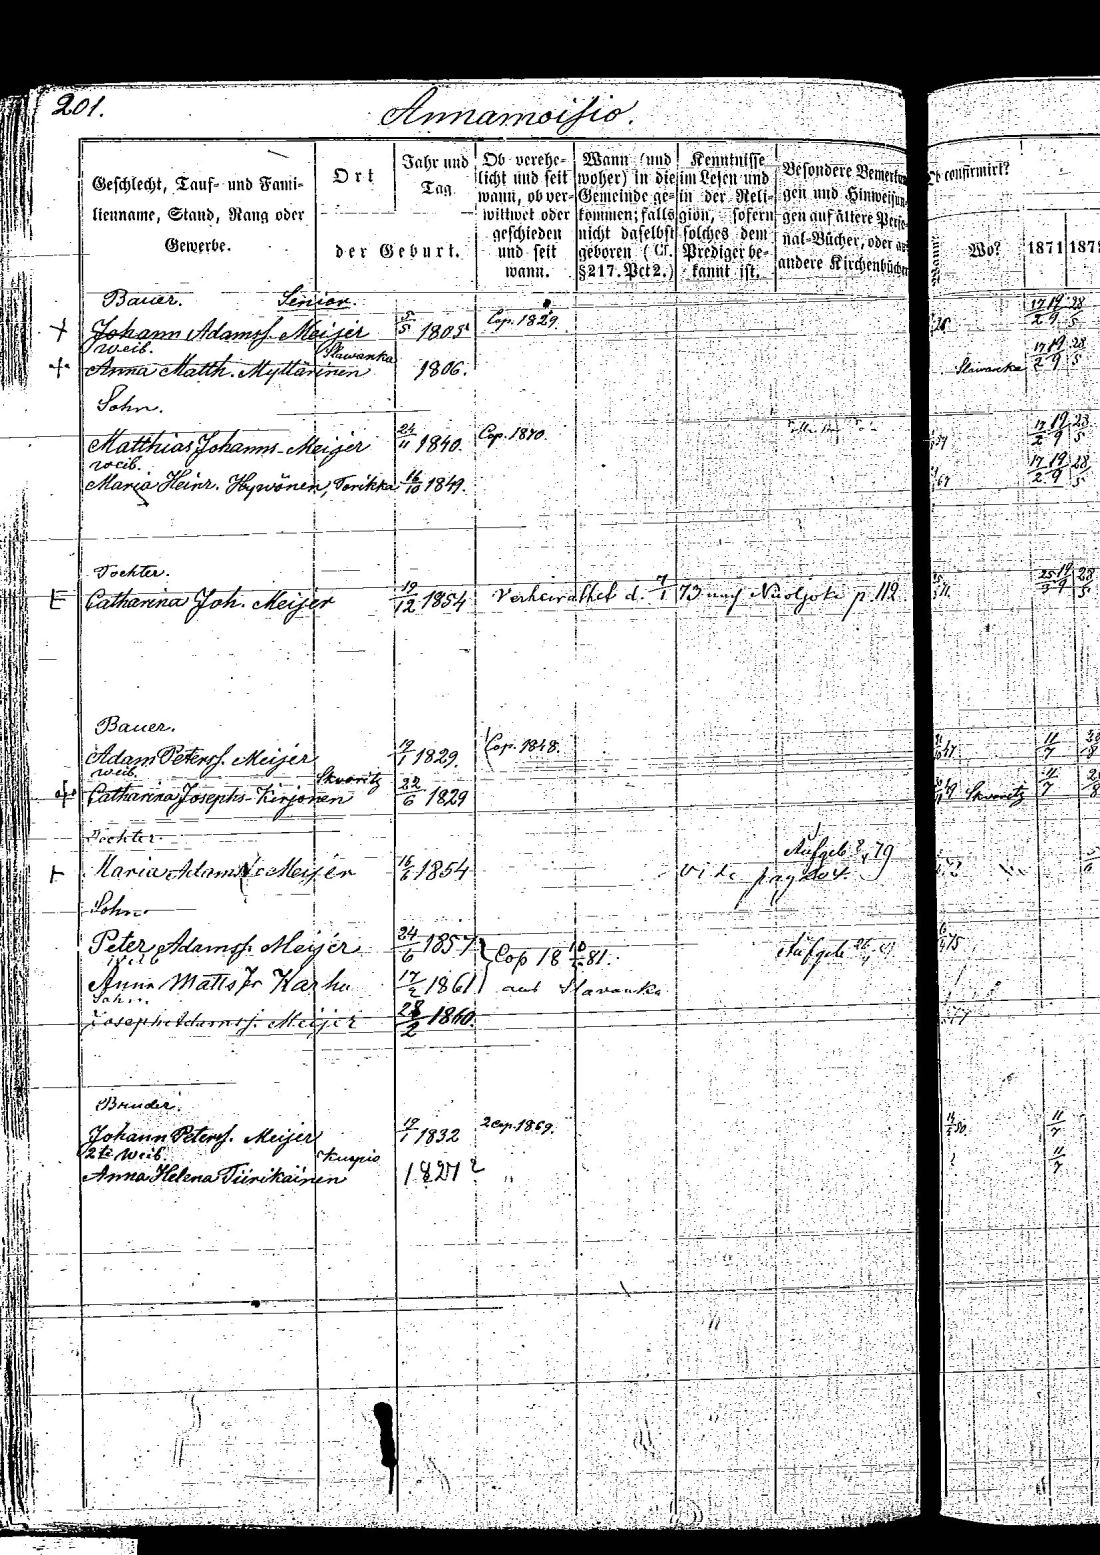 201.
Annamoisio.
Geschlecht, Tauf- und Fami-
lienname, Stand, Rang oder
Gewerbe.
Ort
der Geburt.
Jahr und
Tag.
Ob verehe-
licht und seit
wann, ob ver-
wittwet oder
geschieden
und seit
wann.
Wann (und
woher) in die
Gemeinde ge-
kommen; falls
nicht daselbst
geboren (Cf.
§217. Pct2.)
Kenntnisse
im Lesen und
in der Reli-
gion, sofern
solches dem
Prediger be-
kannt ist.
Besondere Bemerkun
gen und Hinweisun
gen auf ältere Perso
nal-Bücher, oder au
andere Kirchenbüche
Ob confirmirt?
Wann?
Wo?
1871
187
Bauer. Senior.
Johann Adamsf. Meijer 5/5 1805 Cop. 1829. 17/2 19/9 28/5
weib. Slawanka
Anna Matth. Myttärinen 1806. Slawanka 17/2 19/9 28/5
Sohn.
Matthias Johanns. Meijer 24/11 1840. Cop. 1870. 17/2 19/9 28/5
weib.
Maria Heinr. Hywönen, Torikka 16/10 1849. 17/2 19/9 28/5
Tochter.
Catharina Joh. Meijer 19/12 1854 Verheirathet d. 7/1 73 nach p. 112. 19/9 28/5
Bauer.
Adam Petersf. Meijer 19/1 1829 Cop. 1848. 11/7
weib. Skworitz
Catharina Josephs. Kirjonen 22/6 1829 Skworitz 11/7
Tochter.
Maria Adams Meijer 16/6 1854 vide pag 204. Aufgeb 79
Sohn.
Peter Adamsf. Meijer 24/6 1857 Cop 18 81. Aufgeb
weib
Anna Matts Karhu 17/2 1861 aus Slavanka
Sohn.
Joseph Adamsf. Meijer 28/2 1860.
Bruder.
Johann Petersf. Meijer 19/1 1832 2 cop. 1869. 11/7
2te Weib. Kuopio
Anna Helena Tiirikäinen 1827? " 11/7